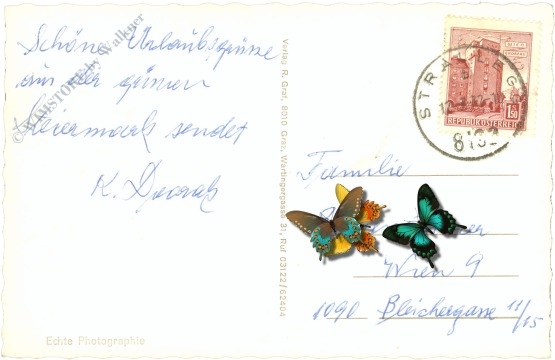 Schöne Urlaubsgrüsse
aus der grünen
Steiermark sendet
K. Dvorak
© WIMSTORE by Walkner
Echte Photographie
Verlag R. Graf, 8010 Graz, Wartingergasse 31, Ruf 03122/62404
WIEN
1.50
REPUBLIK ÖSTERREICH
STRALLEGG
Familie
Wien 9
1090 Bleichergasse 11/15